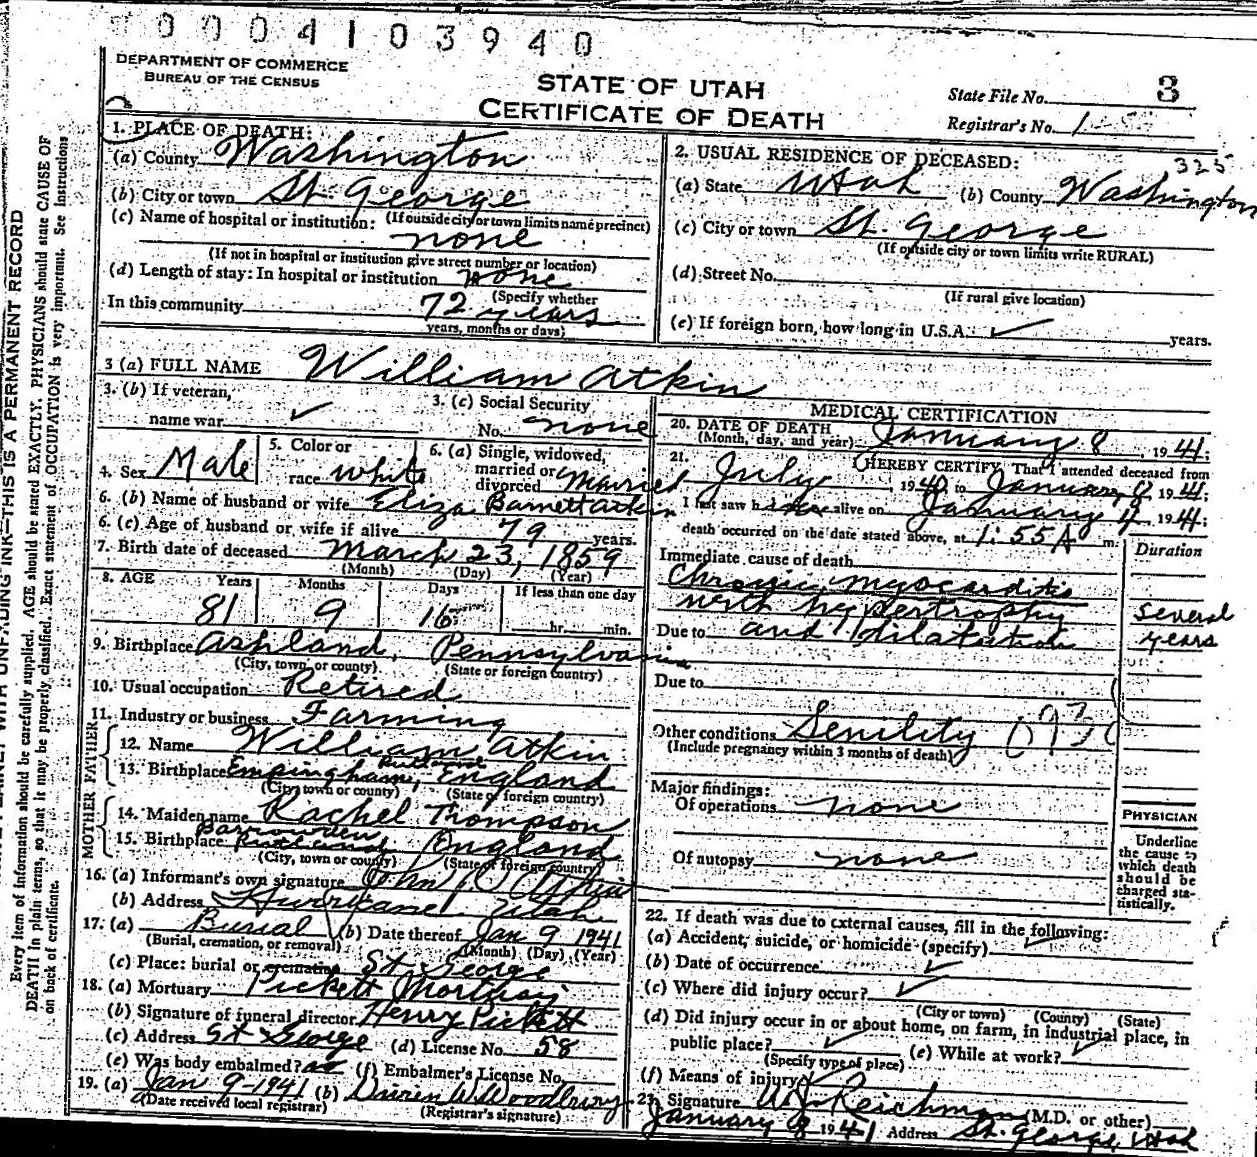 0004103940
DEPARTMENT OF COMMERCE
BUREAU OF THE CENSUS
STATE OF UTAH
CERTIFICATE OF DEATH
State File No. 3
Registrar's No. 1
1. PLACE OF DEATH:
(a) County Washington
(b) City or town St. George
(c) Name of hospital or institution: (If outside city or town limits name precinct)
none
(If not in hospital or institution give street number or location)
(d) Length of stay: In hospital or institution none
(Specify whether
In this community 72 years
years, months or days)
2. USUAL RESIDENCE OF DECEASED:
325
(a) State Utah (b) County Washington
(c) City or town St. George
(If outside city or town limits write RURAL)
(d) Street No.
(If rural give location)
(e) If foreign born, how long in U.S.A.: ✓ years.
3 (a) FULL NAME William Atkin
3. (b) If veteran,
name war ✓
3. (c) Social Security
No. none
4. Sex Male
5. Color or
race white
6. (a) Single, widowed,
married or
divorced Married
6. (b) Name of husband or wife Eliza Barnett Atkin
6. (c) Age of husband or wife if alive 79 years.
7. Birth date of deceased March 23, 1859
(Month) (Day) (Year)
8. AGE Years Months Days If less than one day
81 9 16 hr. min.
9. Birthplace Ashland, Pennsylvania
(City, town, or county) (State or foreign country)
10. Usual occupation Retired
11. Industry or business Farming
FATHER
12. Name William Atkin
13. Birthplace Empingham, Rutland England
(City, town or county) (State or foreign country)
MOTHER
14. Maiden name Rachel Thompson
15. Birthplace Barrowden Rutland England
(City, town or county) (State or foreign country)
16. (a) Informant's own signature John Atkin
(b) Address Hurricane, Utah
17. (a) Burial (b) Date thereof Jan 9 1941
(Burial, cremation, or removal) (Month) (Day) (Year)
(c) Place: burial or cremation St George
18. (a) Mortuary Pickett Mortuary
(b) Signature of funeral director Henry Pickett
(c) Address St George (d) License No. 58
(e) Was body embalmed? no (f) Embalmer's License No.
19. (a) Jan 9-1941 (b) Woodbury
(Date received local registrar) (Registrar's signature)
MEDICAL CERTIFICATION
20. DATE OF DEATH
(Month, day, and year) January 8, 1941;
21. I HEREBY CERTIFY, That I attended deceased from
July 1940 to January 8 1941;
I last saw h alive on January 4, 1941;
death occurred on the date stated above, at 1:55 A m.
Duration
Immediate cause of death
Chronic myocarditis
with hypertrophy
Due to and dilatation
Several
years
Due to
Other conditions Senility
(Include pregnancy within 3 months of death)
Major findings:
Of operations none
Of autopsy none
PHYSICIAN
Underline
the cause to
which death
should be
charged sta-
tistically.
22. If death was due to external causes, fill in the following:
(a) Accident, suicide, or homicide (specify) ✓
(b) Date of occurrence ✓
(c) Where did injury occur? ✓
(City or town) (County) (State)
(d) Did injury occur in or about home, on farm, in industrial place, in
public place? ✓ (e) While at work? ✓
(Specify type of place)
(f) Means of injury ✓
23. Signature Reichman (M.D. or other)
January 8 1941 Address St. George, Utah
Every item of information should be carefully supplied. AGE should be stated EXACTLY. PHYSICIANS should state CAUSE OF
DEATH in plain terms, so that it may be properly classified. Exact statement of OCCUPATION is very important. See Instructions
on back of certificate.
WITH UNFADING INK—THIS IS A PERMANENT RECORD